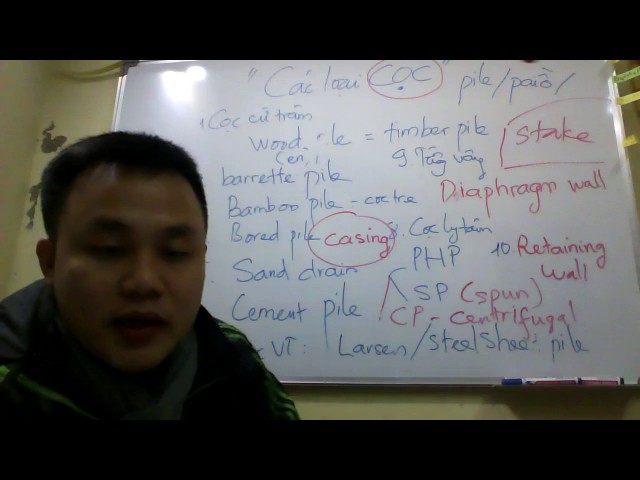 "Các loại CỌC" pile/paiồ/
1. Cọc cừ tràm
wood = timber pile
stake
9. Tường vây
barrette pile
Diaphragm wall
Bamboo pile - cọc tre
Bored pile casing 8. Cọc ly tâm
PHP 10 Retaining wall
Sand drain
SP (spun)
Cement pile CP - centrifugal
VT: Larsen/Steel Sheet pile